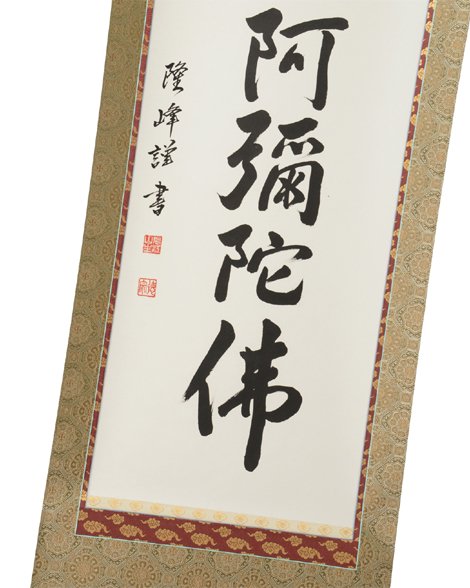 阿彌陀佛
隆峰謹書